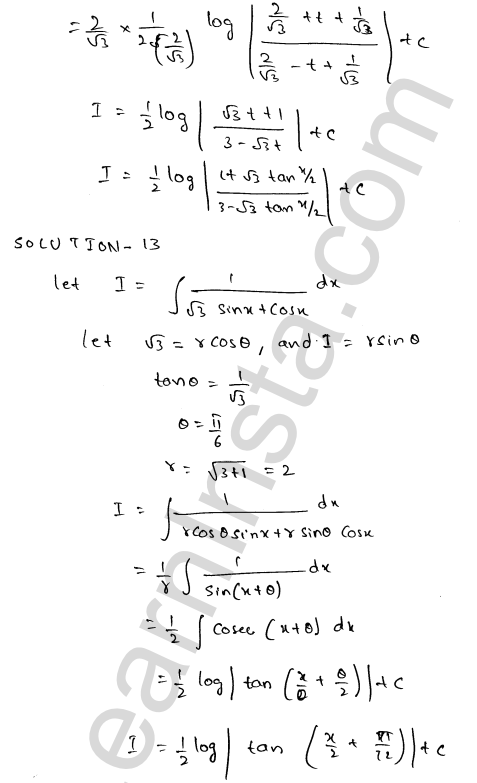 = 2/√3 × 1/2(2/√3) log | (2/√3 + t + 1/√3) / (2/√3 - t + 1/√3) | + c
I = 1/2 log | (√3 t + 1) / (3 - √3 t) | + c
I = 1/2 log | (1 + √3 tan x/2) / (3 - √3 tan x/2) | + c
SOLUTION - 13
let I = ∫ 1/(√3 sinx + cosx) dx
let √3 = r cosθ, and I = r sinθ
tanθ = 1/√3
θ = π/6
r = √3+1 = 2
I = ∫ 1/(r cosθ sinx + r sinθ cosx) dx
= 1/r ∫ 1/sin(x+θ) dx
= 1/2 ∫ cosec (x+θ) dx
= 1/2 log | tan (x/2 + θ/2) | + c
I = 1/2 log | tan (x/2 + π/12) | + c
earninsta.com